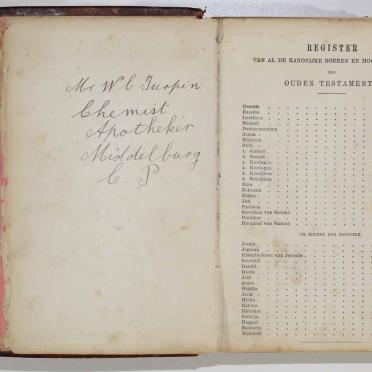 Mr W C Turpin
Chemist
Apotheker
Middelburg
C. P.
REGISTER
VAN AL DE KANONIJKE BOEKEN EN
DES
OUDEN TESTAMENT
Genesis
Exodus
Leviticus
Numeri
Deuteronomium
Jozua
Richteren
Ruth
1. Samuël
2. Samuël
1. Koningen
2. Koningen
1. Kronijken
2. Kronijken
Ezra
Nehemia
Esther
Job
Psalmen
Spreuken van Salomo
Prediker
Hooglied van Salomo
DE BOEKEN DER PROFETEN.
Jesaja
Jeremia
Klaagliederen van Jeremia
Ezechiël
Daniël
Hosea
Joël
Amos
Obadja
Jona
Micha
Nahum
Habakuk
Zefanja
Haggaï
Zacharia
Maleachi